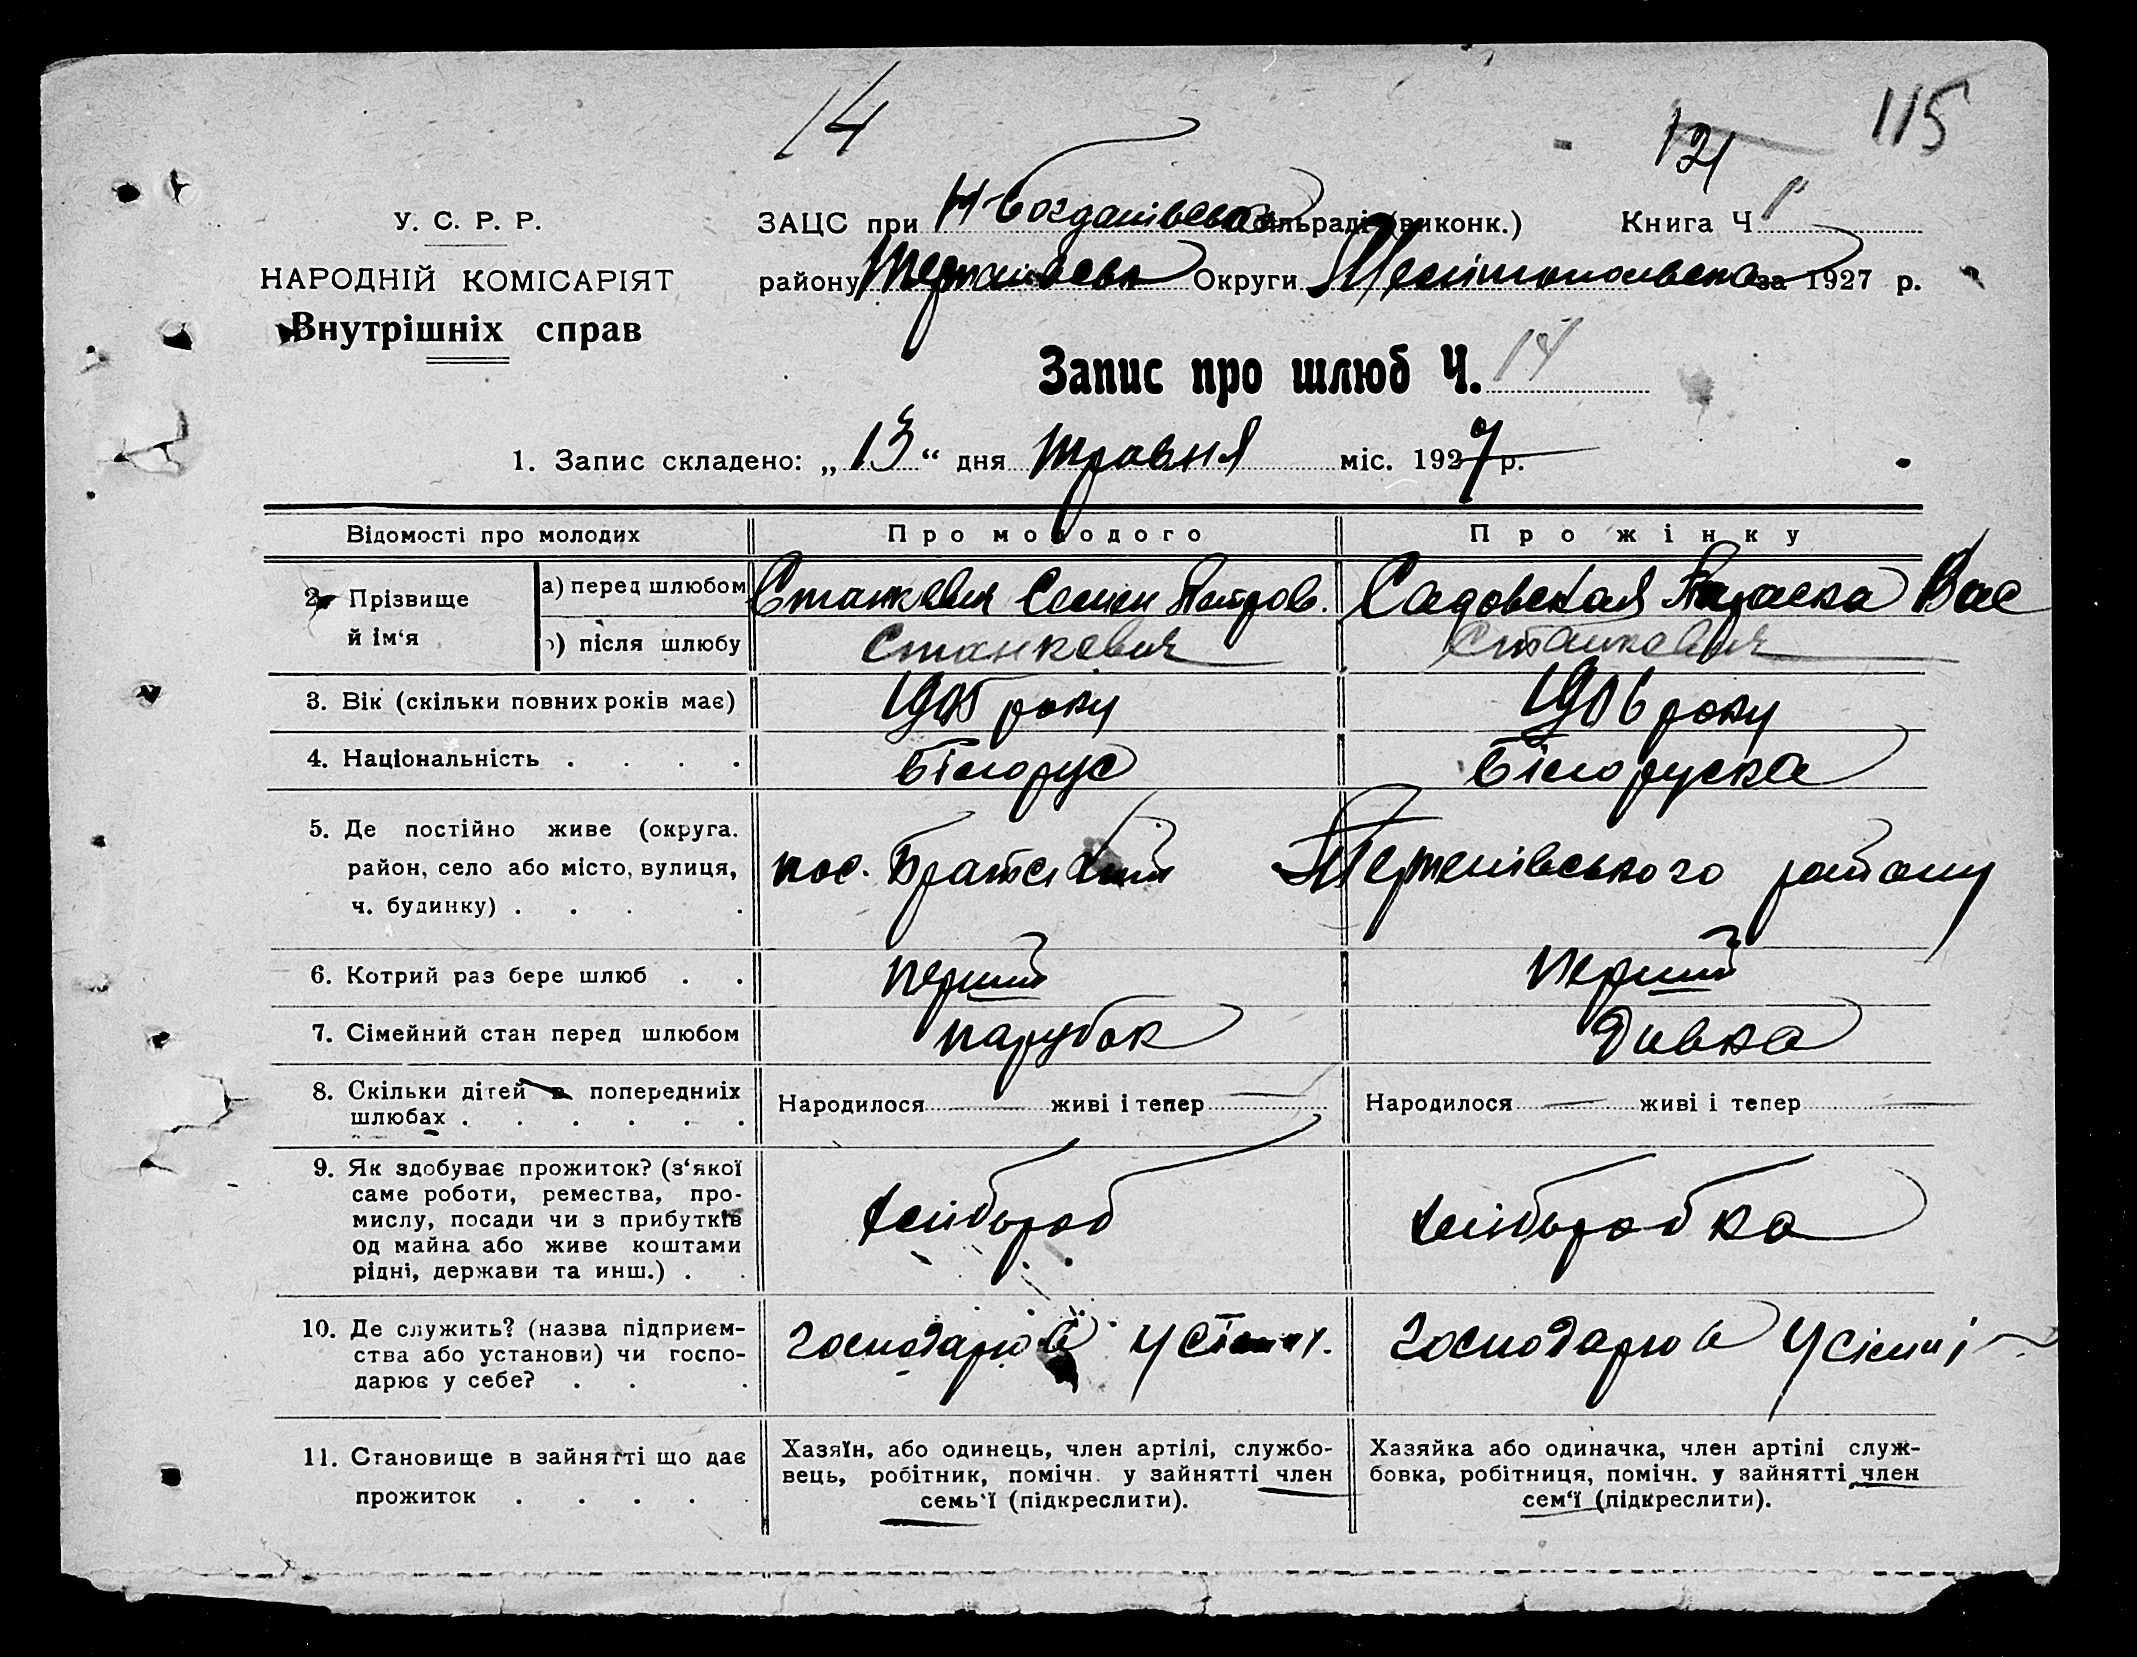 14
121
115
У. С. Р. Р.
НАРОДНІЙ КОМІСАРІЯТ
Внутрішніх справ
ЗАЦС при Н-Богданівська сільраді (виконк.) Книга Ч 1
району Терпинівськ Округи Мелітопольська за 1927 р.
Запис про шлюб Ч. 14
1. Запис складено: „13“ дня травня міс. 1927 р.
Відомості про молодих Про молодого Про жінку
2. Прізвище й ім‘я
а) перед шлюбом Станкевич Семен Петров. Садовская Параска Вас
б) після шлюбу Станкевич Станкевич
3. Вік (скільки повних років має) 1905 року 1906 року
4. Національність . . . . білорус білоруска
5. Де постійно живе (округа,
район, село або місто, вулиця,
ч. будинку) . . . . пос. Братський Терпенівського району
6. Котрий раз бере шлюб . . перший перший
7. Сімейний стан перед шлюбом парубок дивка
8. Скільки дітей в попередниіх
шлюбах . . . . . . Народилося — живі і тепер — Народилося — живі і тепер —
9. Як здобуває прожиток? (з‘якої
саме роботи, ремества, про-
мислу, посади чи з прибутків
од майна або живе коштами
рідні, держави та инш.) . . хлібороб хліборобка
10. Де служить? (назва підприєм-
ства або установи) чи госпо-
дарює у себе? . . . господарює у сімї. господарює у сімї
11. Становище в зайнятті що дає
прожиток . . . . .
Хазяїн, або одинець, член артілі, службо-
вець, робітник, помічн. у зайнятті член
семь‘ї (підкреслити).
Хазяйка або одиначка, член артілі служ-
бовка, робітниця, помічн. у зайнятті член
сем‘ї (підкреслити).